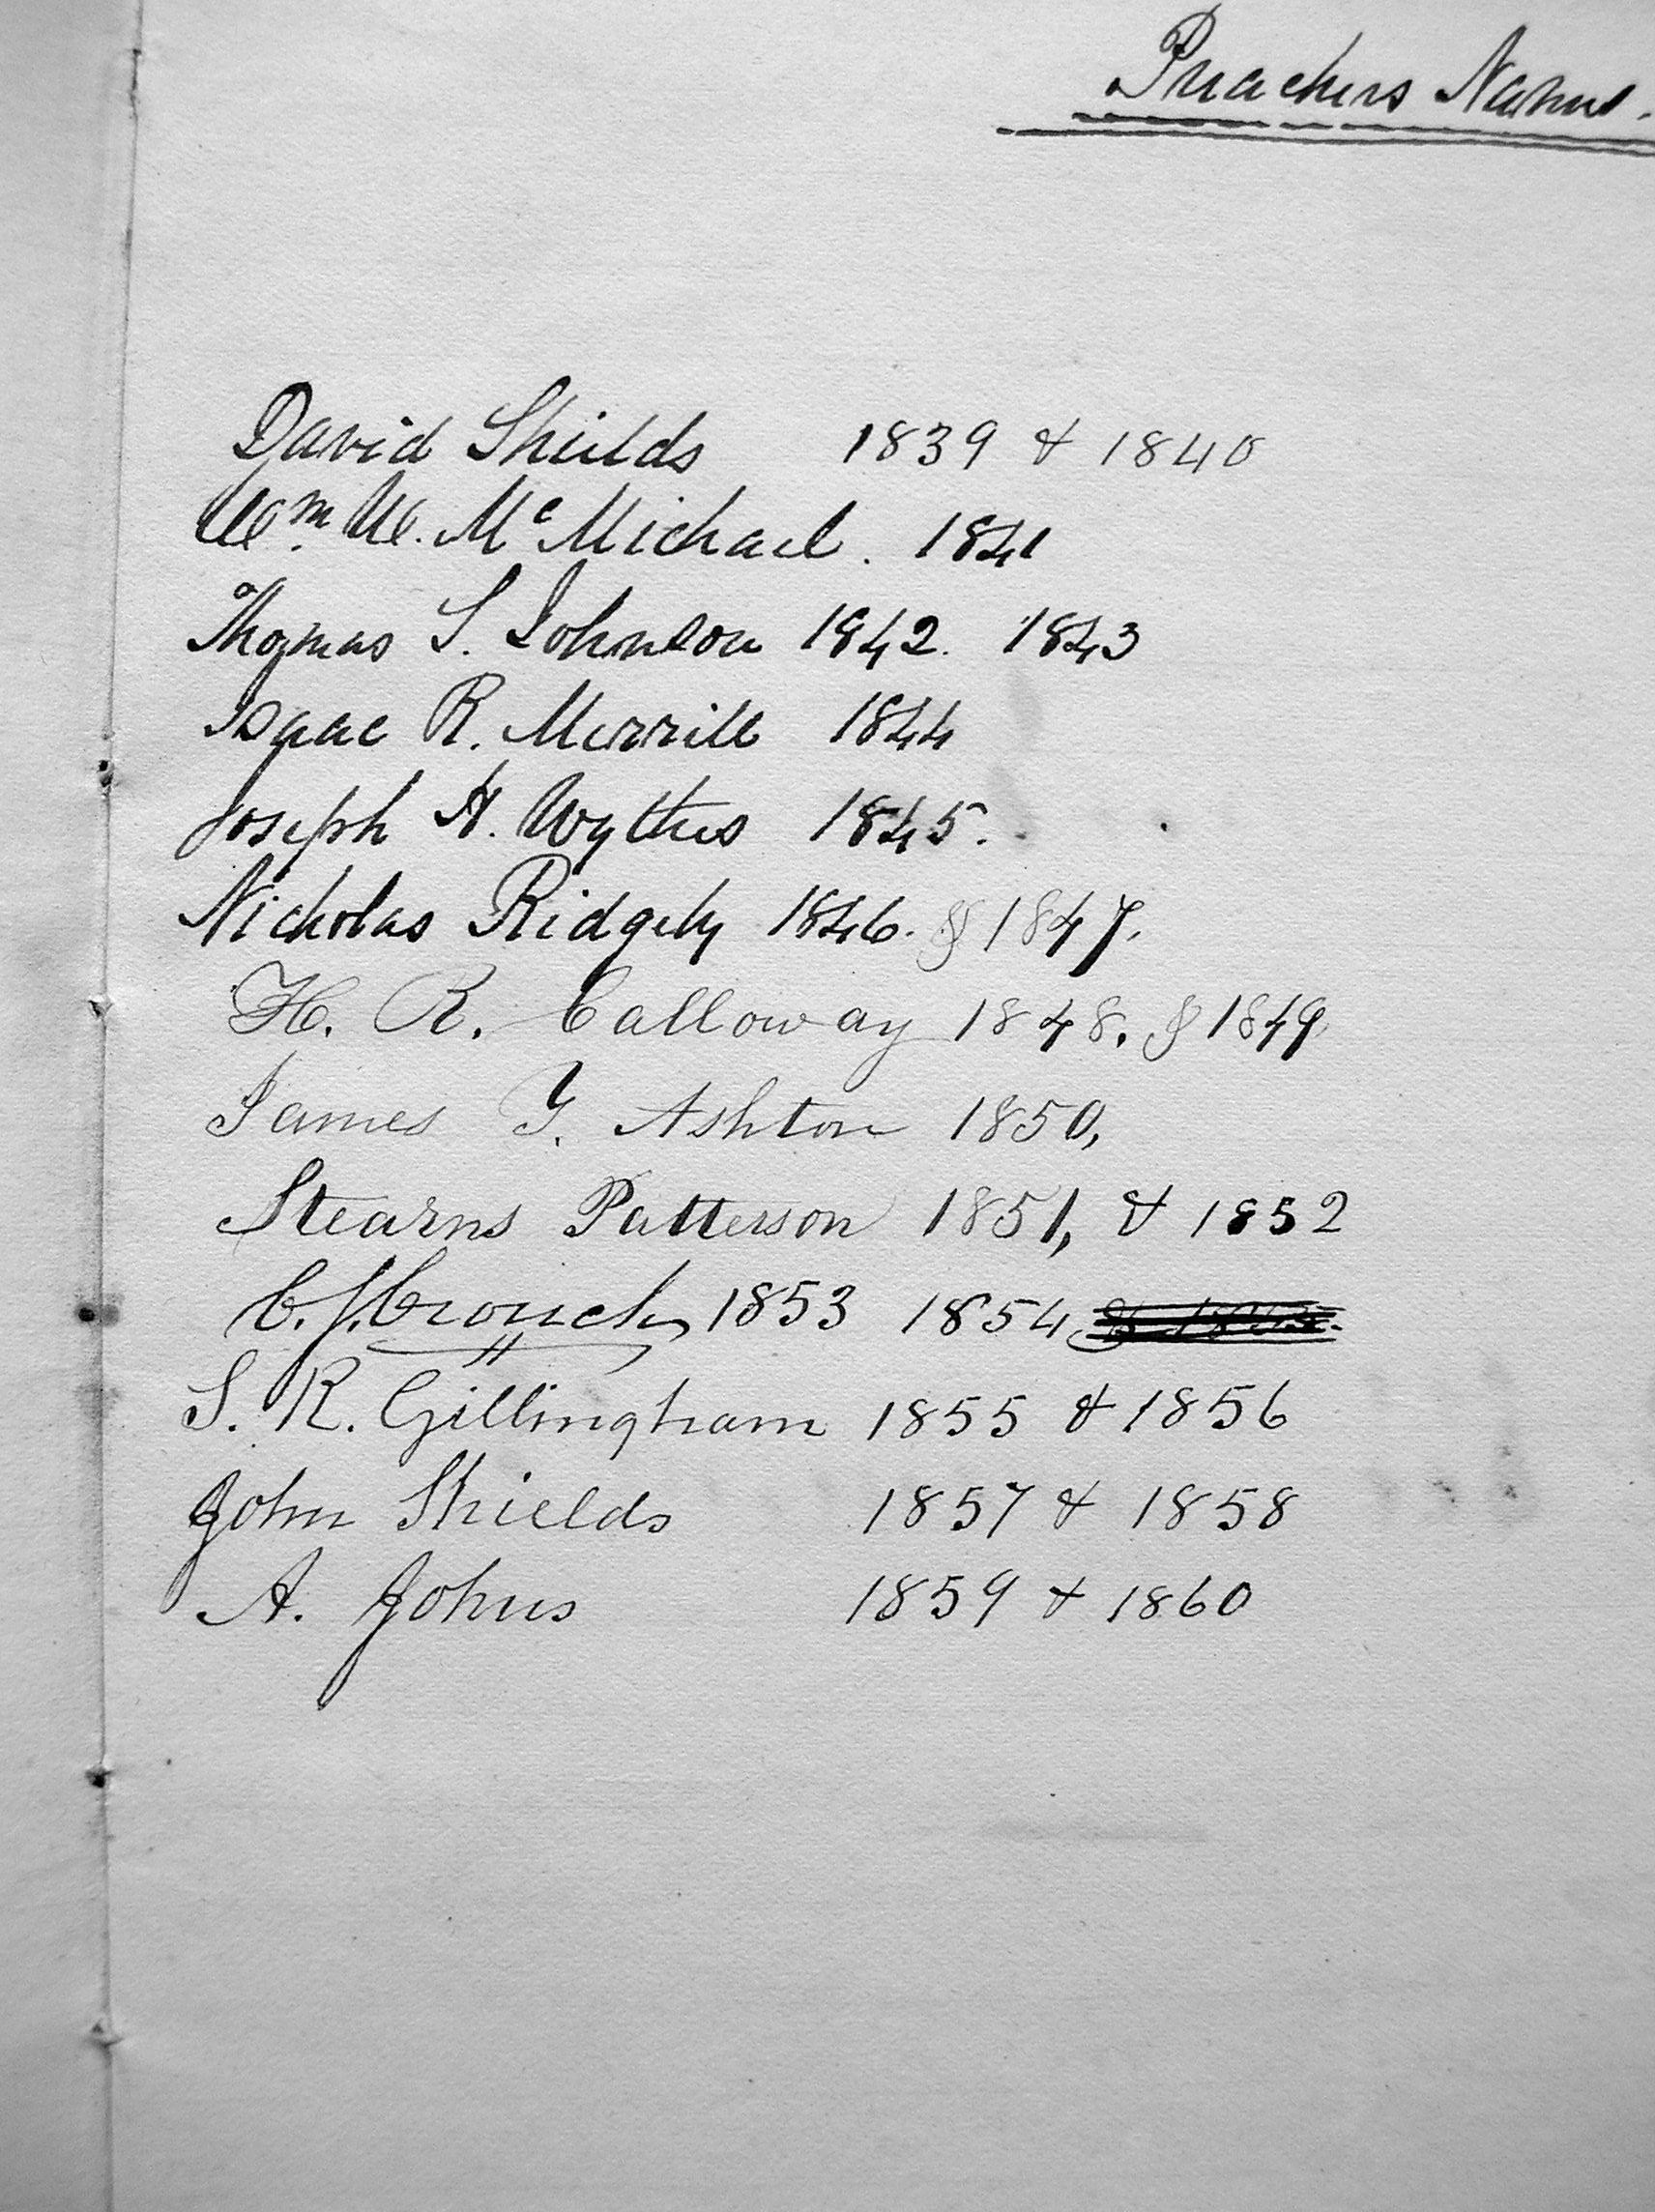 Preachers Name.
David Shields 1839 & 1840
Wm. W. McMichael. 1841
Thomas S. Johnson 1842. 1843
Isaac R. Merrill 1844
Joseph H. Wythes 1845.
Nicholas Ridgely 1846. & 1847.
H. R. Calloway 1848. & 1849
James Y. Ashton 1850,
Stearns Patterson 1851, & 1852
C. J. Crouch 1853 1854
S. R. Gillingham 1855 & 1856
John Shields 1857 & 1858
A. Johns 1859 & 1860